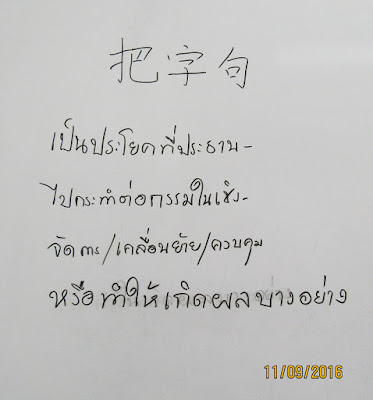 把字句
เป็นประโยคที่ประธาน-
ไปกระทำต่อกรรมในเชิง-
จัดการ/เคลื่อนย้าย/ควบคุม
หรือทำให้เกิดผลบางอย่าง
11/09/2016